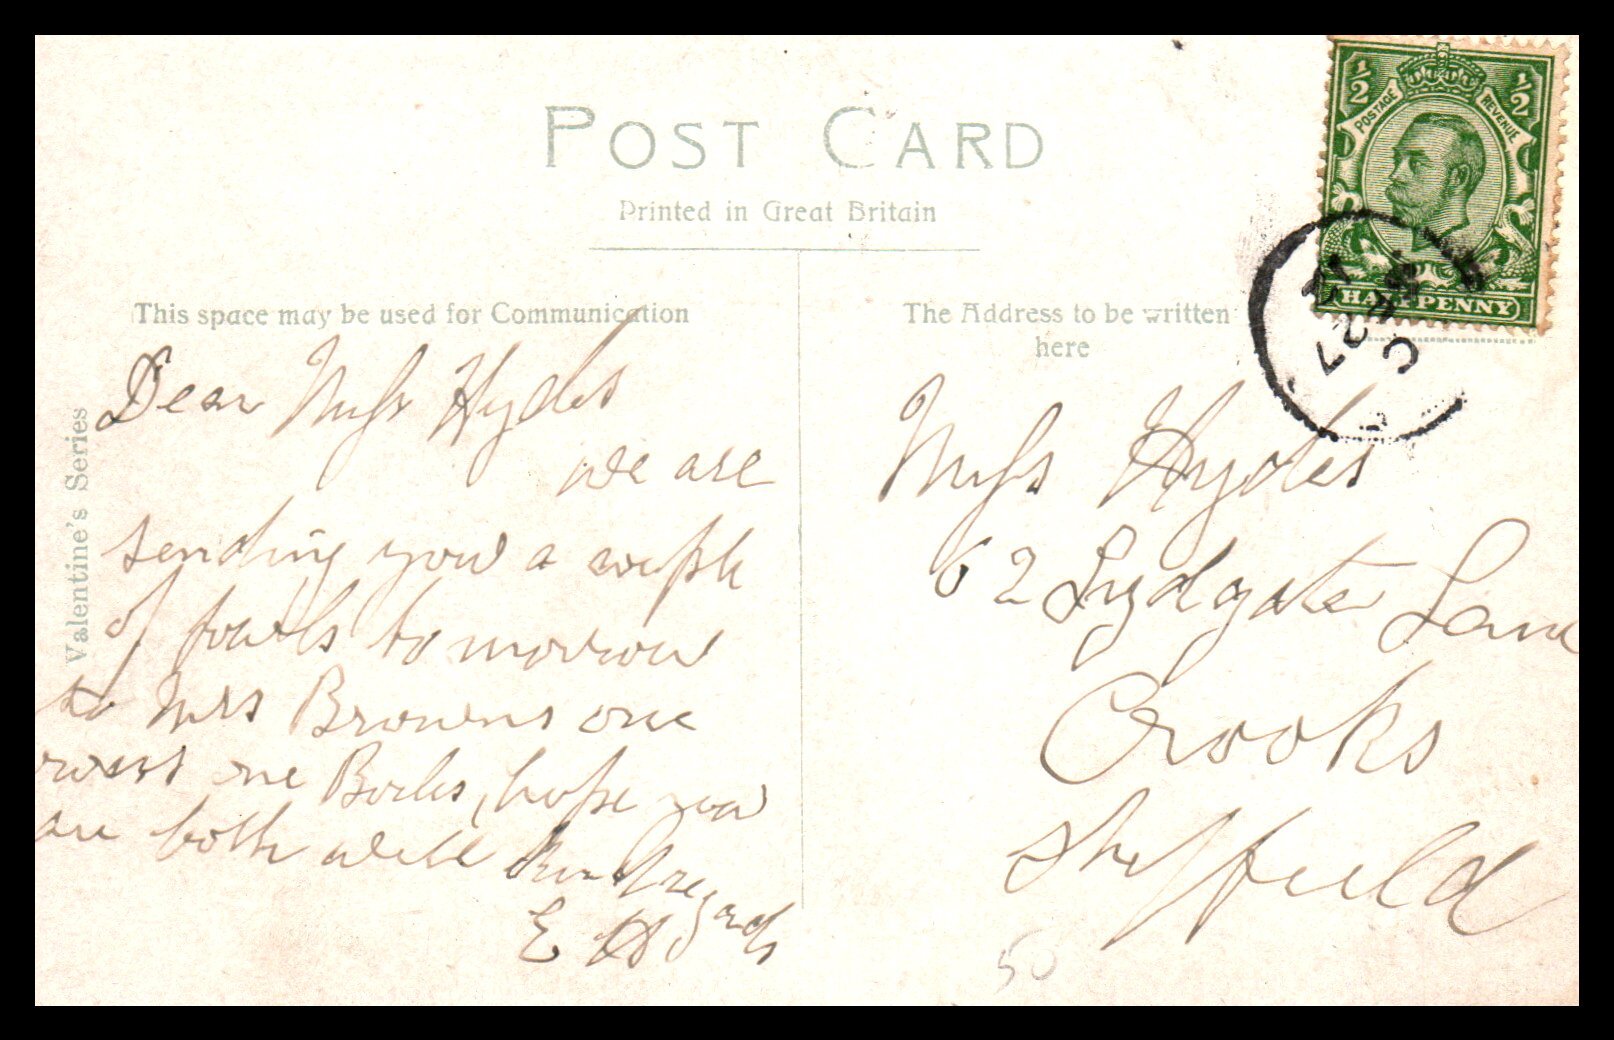 POST CARD
Printed in Great Britain
This space may be used for Communication
The Address to be written
here
Valentine's Series
Dear Miss Hydes
we are
sending you a couple
of fowls tomorrow
to Mrs Browns one
roast one Boiler, hope you
are both well Kind regards
E H
Miss Hydes
62 Lydgate Lane
Crooks
Sheffield
50
½ ½
POSTAGE REVENUE
HALFPENNY
C
27